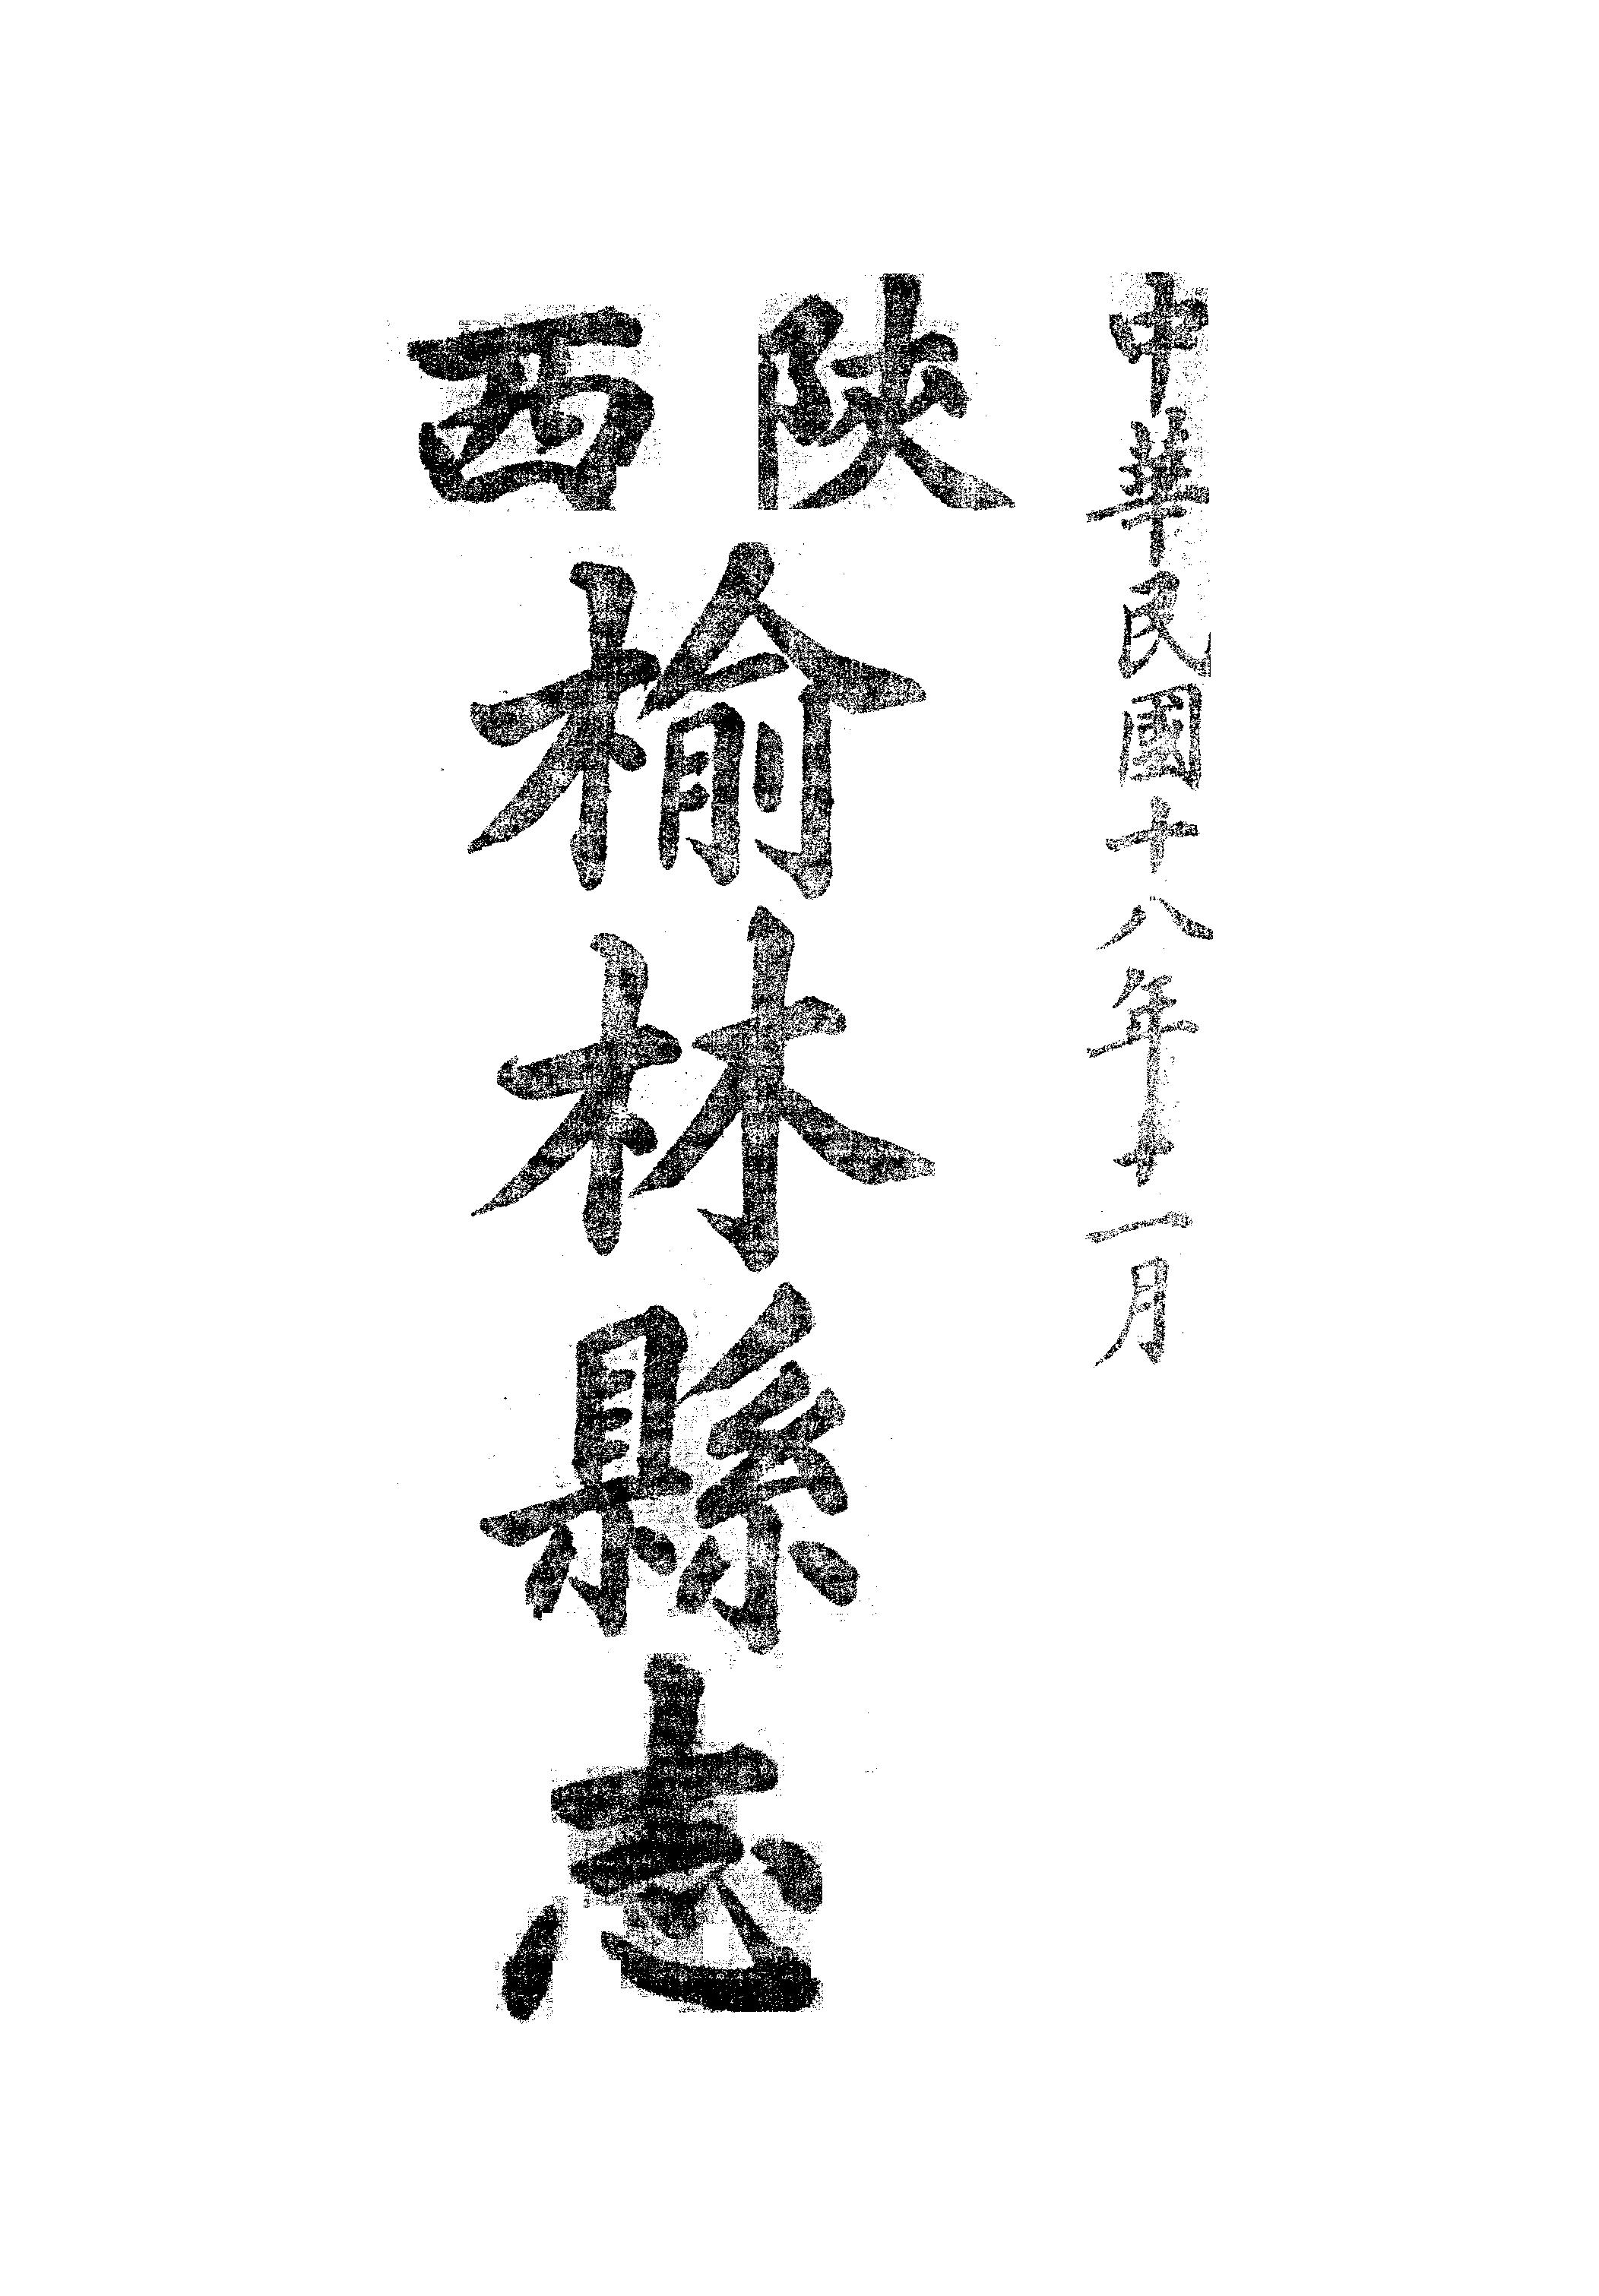 中華民國十八年十一月
陝西
榆林縣志